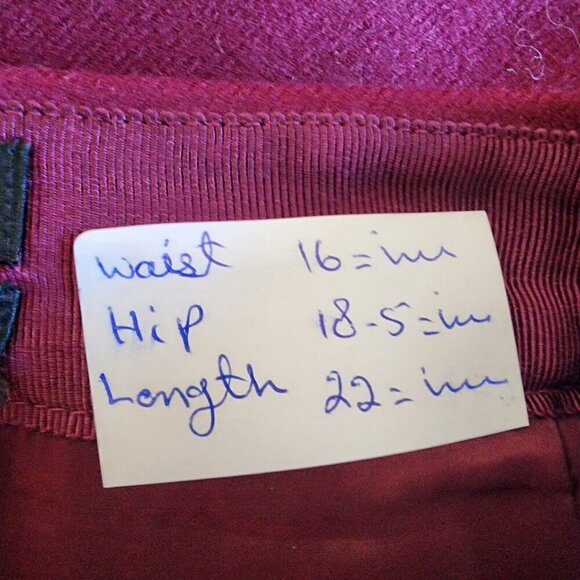 Waist 16=inn
Hip 18-5=in
Length 22=inn